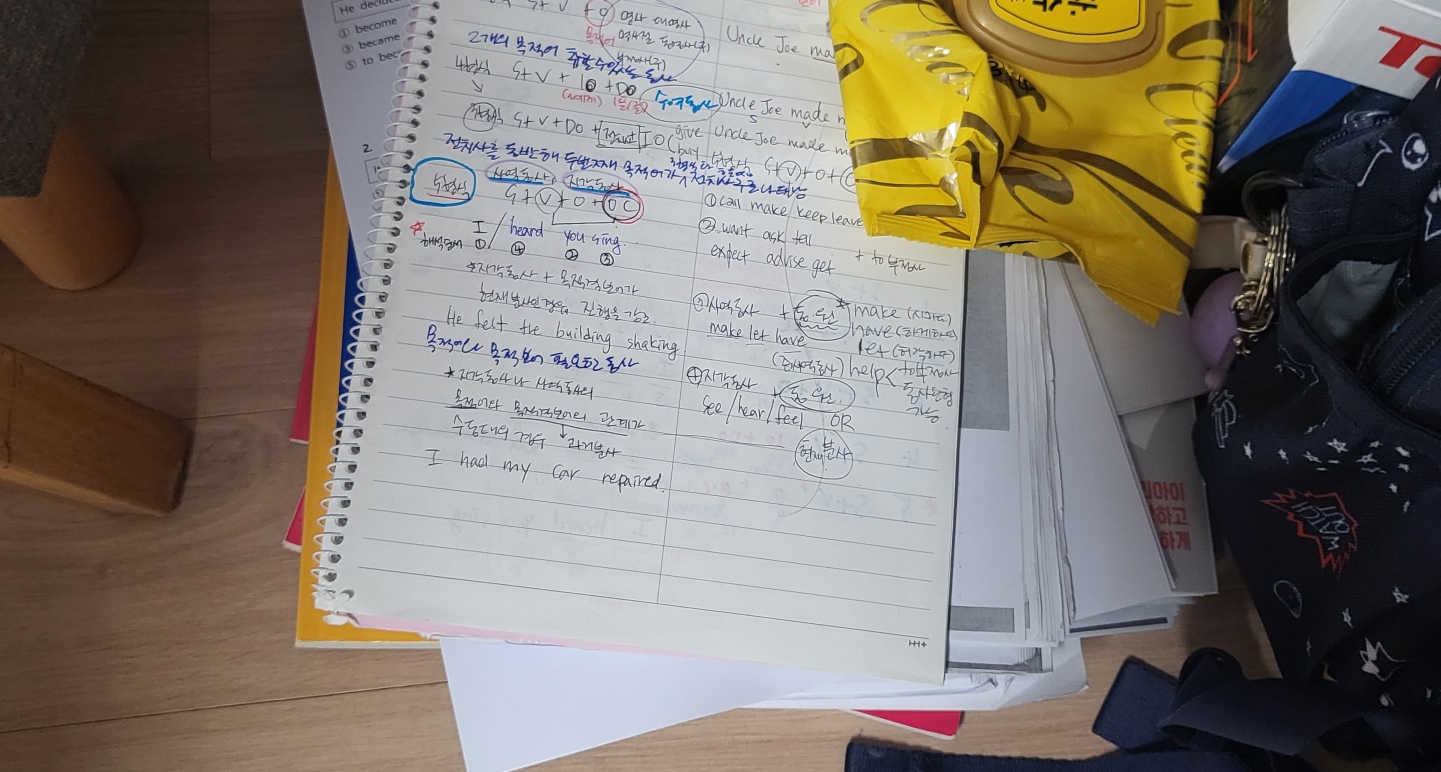 He
① become
③ became
⑤ to bec
2
S+V+O 명사 대명사
목적어 명사절 동명사(구)
부정사(구)
2개의 목적어 취할 수 있는 동사
4형식 S+V+IO+DO 수여동사
3형식 S+V+DO+전치사 IO
give
buy
전치사를 동반해 두번째 목적어가
사역동사, 지각동사
5형식
S+V+O+OC
I / heard you sing.
해석순서 ① ④ ② ③
*지각동사 + 목적격보어가
현재분사인 경우, 진행을 강조
He felt the building shaking
목적어와 목적보어 필요로 동사
★지각동사나 사역동사의
목적어와 목적격보어의 관계가
수동태의 경우 → 과거분사
I had my car repaired.
Uncle Joe ma
Uncle Joe made m
Uncle Joe made m
S V
S+V+O+
① call make keep leave
② want ask tell
expect advise get + to 부정사
③ 사역동사 + 동.원
make let have
★make (시키다)
have (하게하다)
let (허락하다)
(준사역동사) help < to부정사
동사원형
가능.
④ 지각동사 + 동.원.
see/hear/feel OR
현재분사
아이
하고
하게